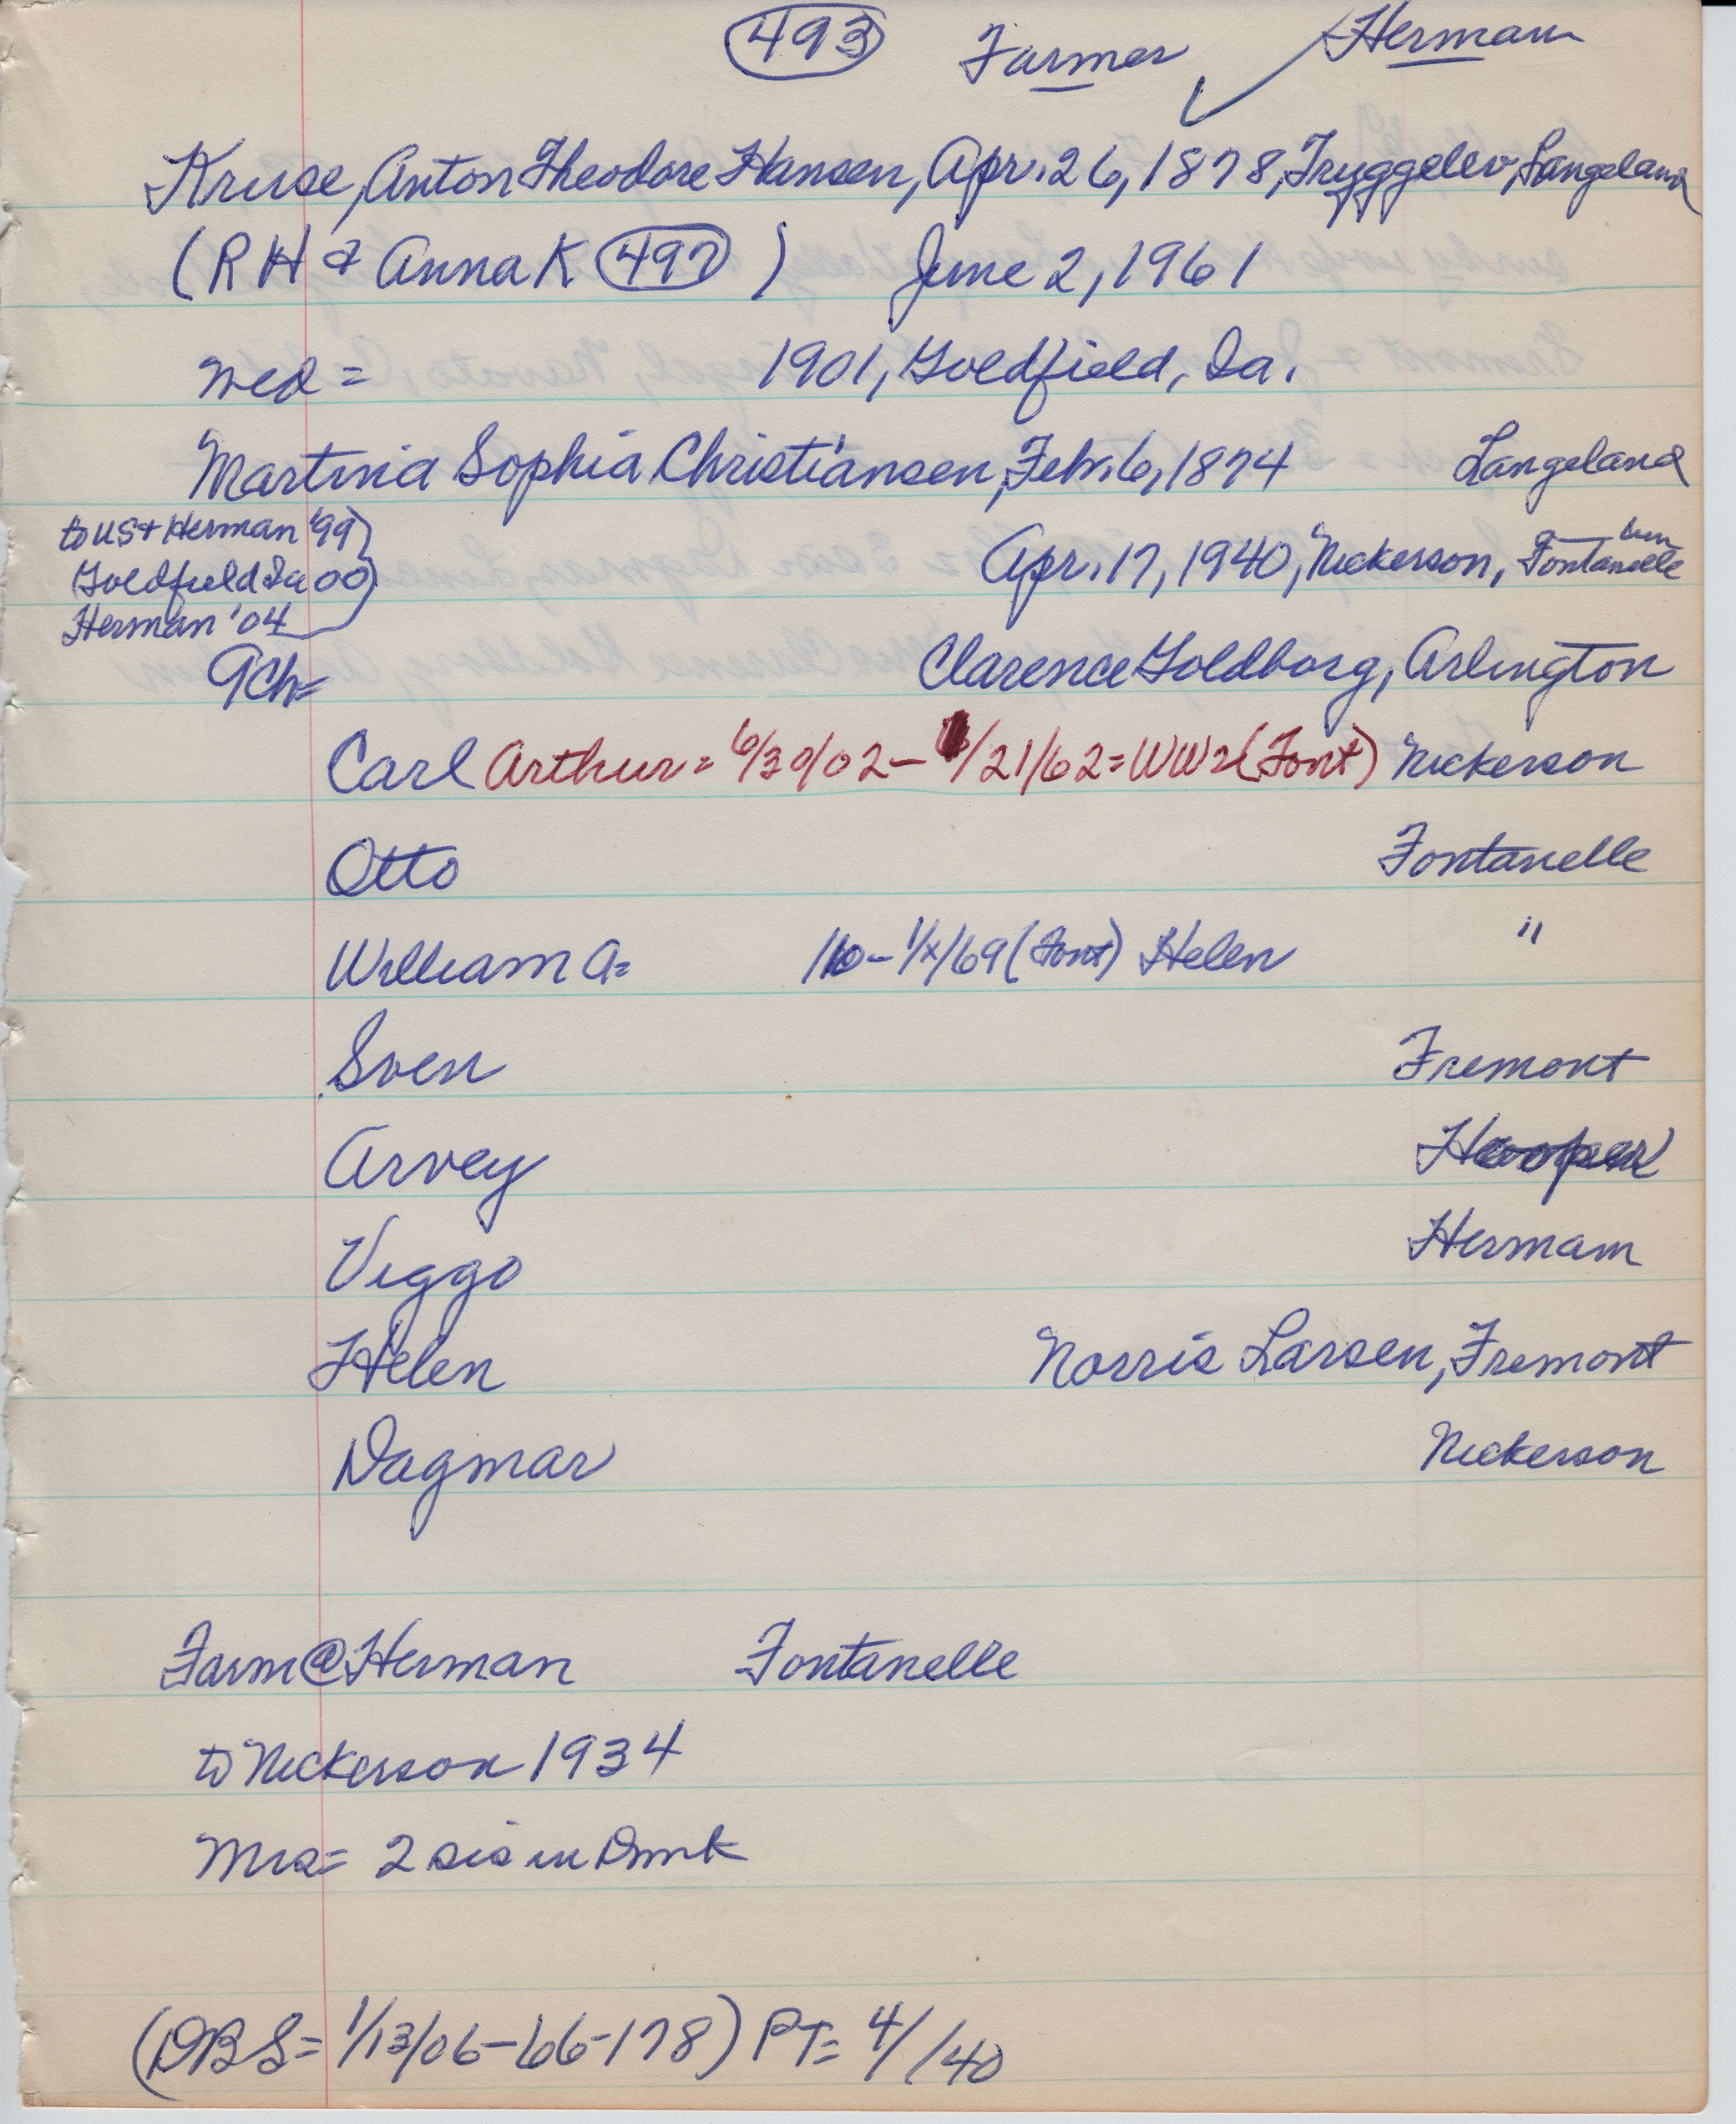 493 Farmer ✓ Herman
Kruse, Anton Theodore Hansen, Apr. 26, 1878, Tryggelev, Langeland
(RH & Anna K 497) June 2, 1961
Wed = 1901, Goldfield, Ia.
Martina Sophia Christiansen, Feb. 6, 1874 Langeland
to US + Herman '99
Apr. 17, 1940, Nickerson, Fontanelle
Goldfield Ia 00
Herman '04
9ch= Clarence Goldborg, Arlington
Carl Arthur = 6/30/02 – /21/62 = WW2 (Font) Nickerson
Otto Fontanelle
William A= – 1/x/69 (Font) Helen "
Sven Fremont
Arvey Hooper
Viggo Herman
Helen Norris Larsen, Fremont
Dagmar Nickerson
Farm @ Herman Fontanelle
to Nickerson 1934
Mrs = 2 sis in Dmk
(DBS = 1/13/06–66–178) PT = 4/ /40